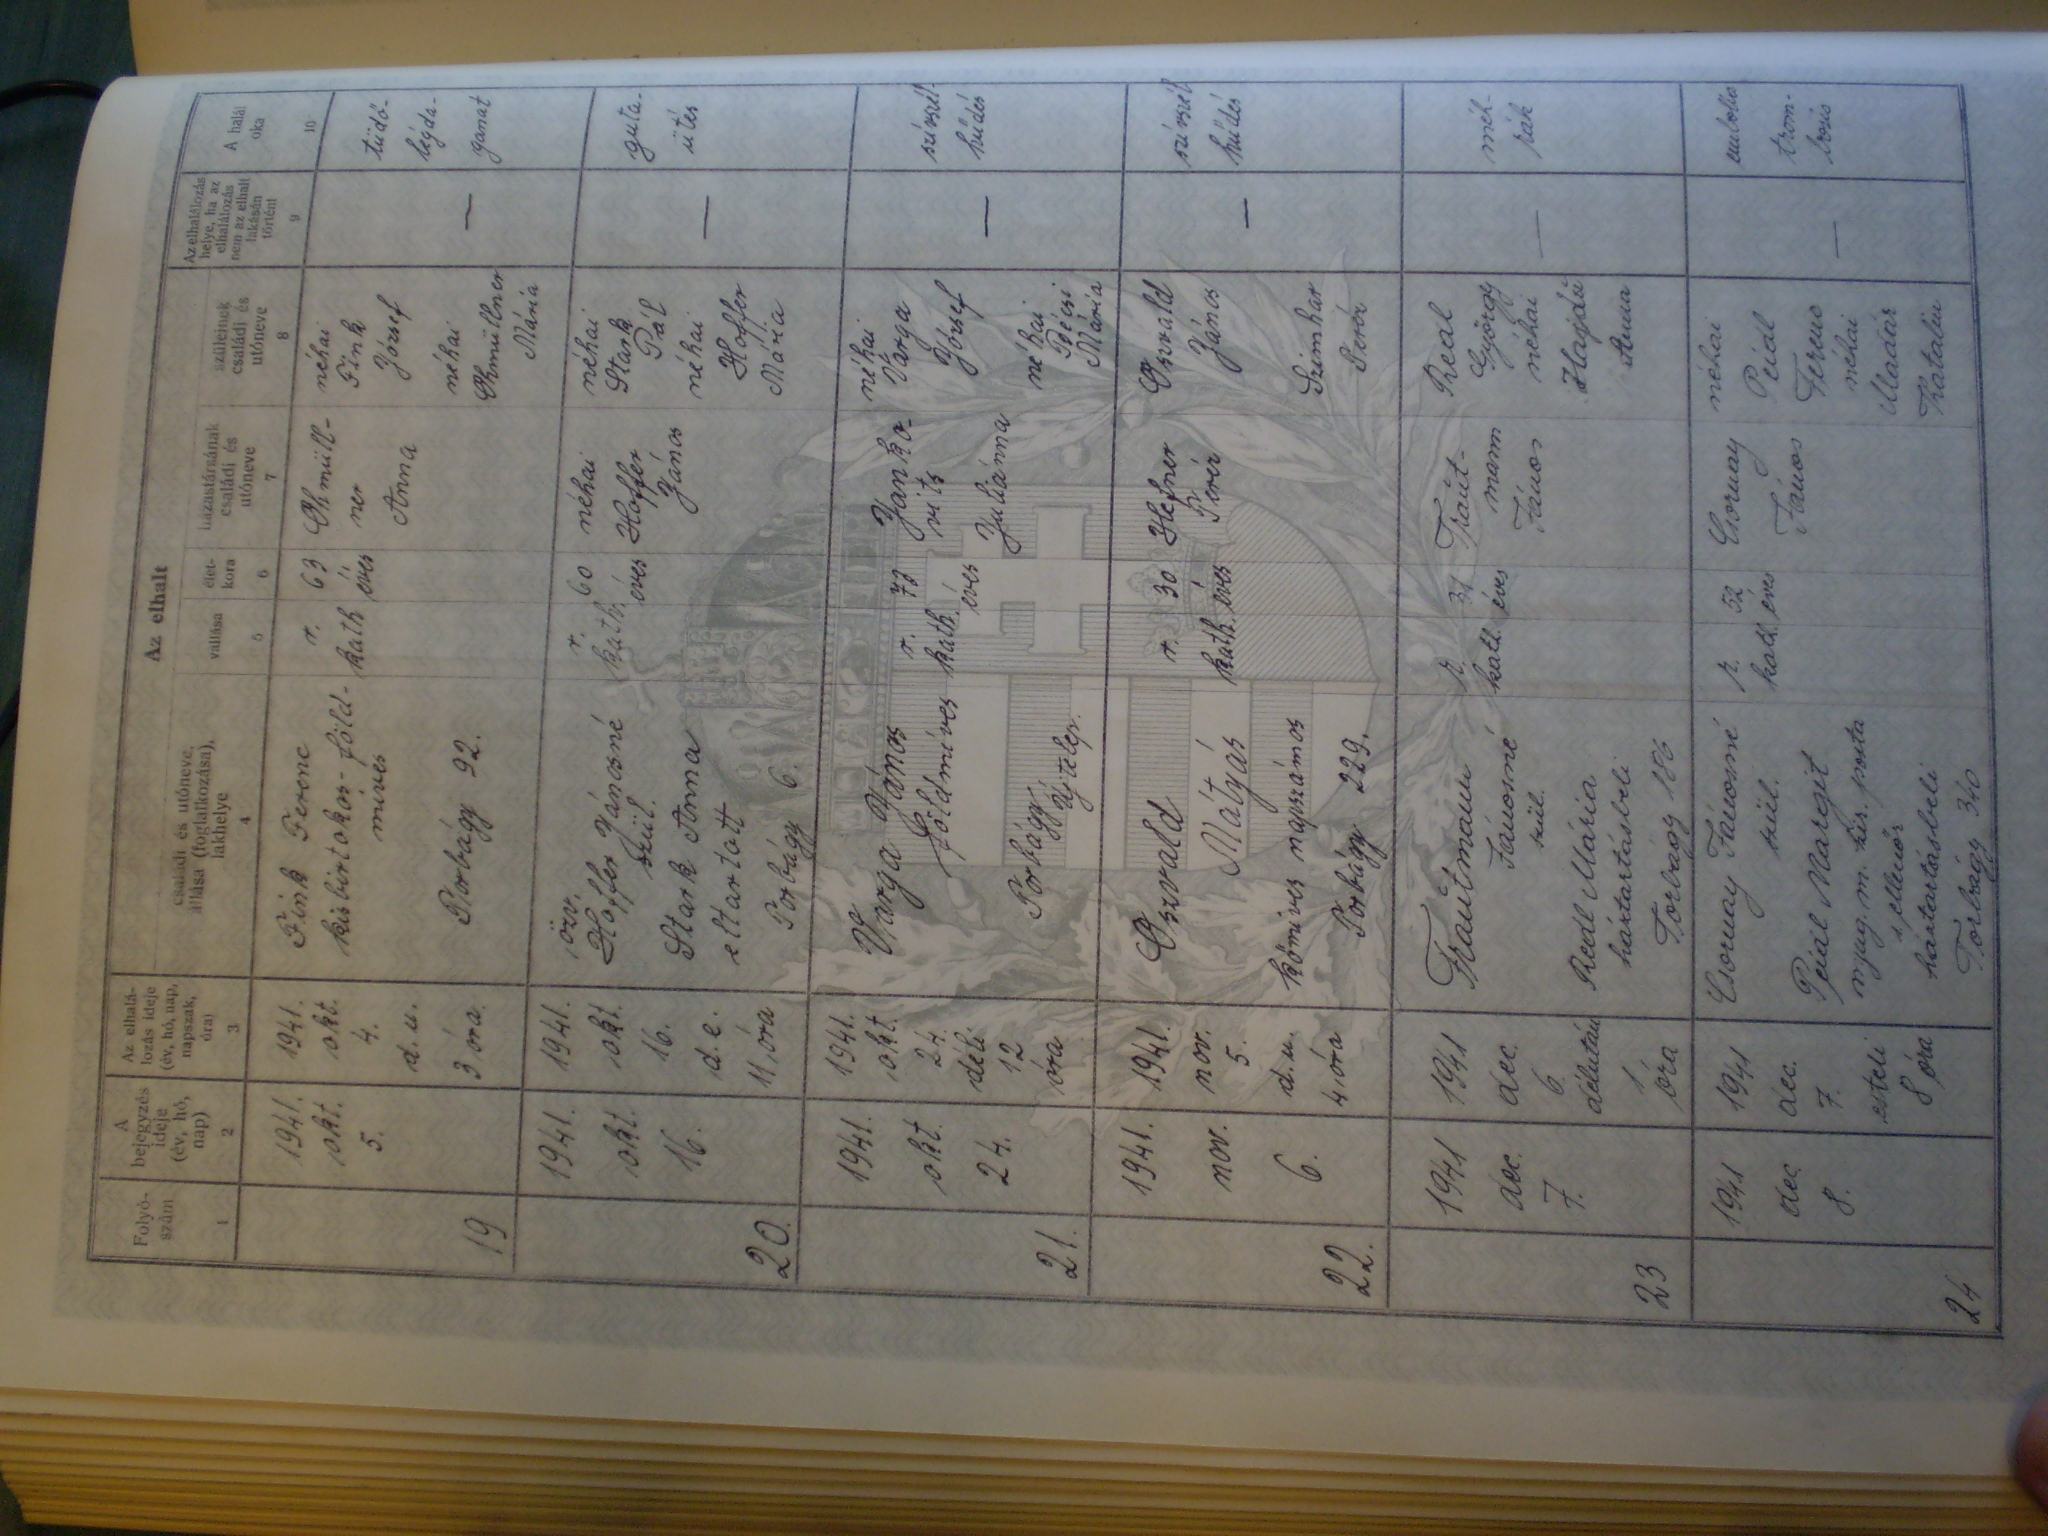 Folyó-
szám
A
bejegyzés
ideje
(év, hó,
nap)
Az elhalá-
lozás ideje
(év, hó, nap,
napszak,
óra)
Az elhalt
családi és utóneve,
állása (foglalkozása),
lakhelye
vallása
élet-
kora
házastársának
családi és
utóneve
szüleinek
családi és
utóneve
Az elhalálozás
helye, ha az
elhalálozás
nem az elhalt
lakásán
történt
A halál
oka
1
2
3
4
5
6
7
8
9
10
19
1941.
okt.
5.
1941.
okt.
4.
d.u.
3 óra.
Fink Ferenc
kisbirtokos-föld-
míves
Torbágy 92.
r.
kath
63
éves
Ohmüll-
ner
Anna
néhai
Fink
József
néhai
Ohmüllner
Mária
—
tüdő-
légda-
ganat
20.
1941.
okt.
16.
1941.
okt.
16.
d.e.
11 óra
özv.
Hoffer Jánosné
szül.
Stark Anna
eltartott
Torbágy 6.
r.
kath.
60
éves
néhai
Hoffer
János
néhai
Stark
Pál
néhai
Hoffer
Mária
—
guta-
ütés
21.
1941.
okt.
24.
1941.
okt.
24.
déli.
12
óra
Varga János
földmíves
Torbágy
Újtelep.
r.
kath.
73
éves
Janko-
vits
Juliánna
néhai
Varga
József
néhai
Bécsi
Mária
—
szívszél-
hűdés
22.
1941.
nov.
6.
1941.
nov.
5.
d.u.
4 óra
Oszvald
Mátyás
kőmíves napszámos
Torbágy 229.
r.
kath.
30
éves
Hefner
Teréz
Oszvald
János
Szimhár
Teréz
—
szívszél
hűdés
23
1941
dec.
7.
1941
dec.
6.
délután
1
óra
Trautmann
Jánosné
szül.
Redl Mária
háztartásbeli
Torbágy 186
r.
kath.
éves
Traut-
mann
János
György
néhai
Hajdú
Anna
—
méh-
rák
24
1941
dec.
8.
1941
dec.
7.
esteli
8 óra
Csornay Jánosné
szül.
Peidl Margit
nyug. m. kir. posta
s.ellenőr
háztartásbeli
Torbágy 340
r.
kath.
52
éves
Csornay
János
néhai
Peidl
Ferenc
néhai
Madár
Katalin
—
embolia
trom-
bosis